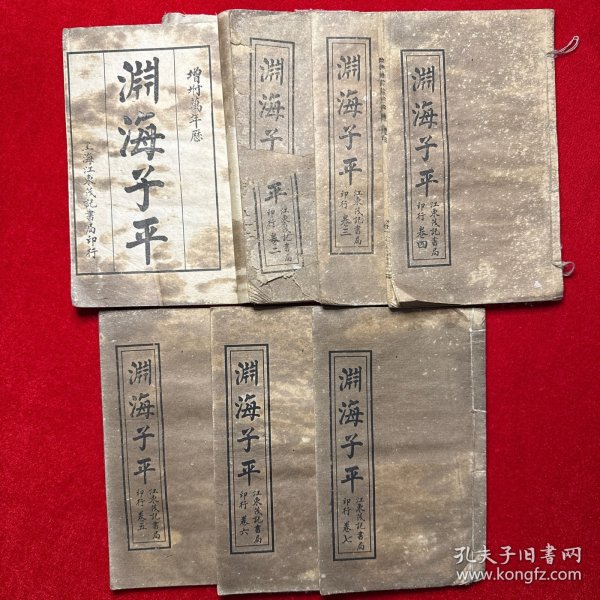 增坿萬年歷
淵海子平
上海江東茂記書局印行
淵海子
平
江東茂記書局
印行 卷二
淵海子平
江東茂記書局
印行 卷三
淵海子平
江東茂記書局
印行 卷四
淵海子平
江東茂記書局
印行 卷五
淵海子平
江東茂記書局
印行 卷六
淵海子平
江東茂記書局
印行 卷七
孔夫子旧书网
www.kongfz.com